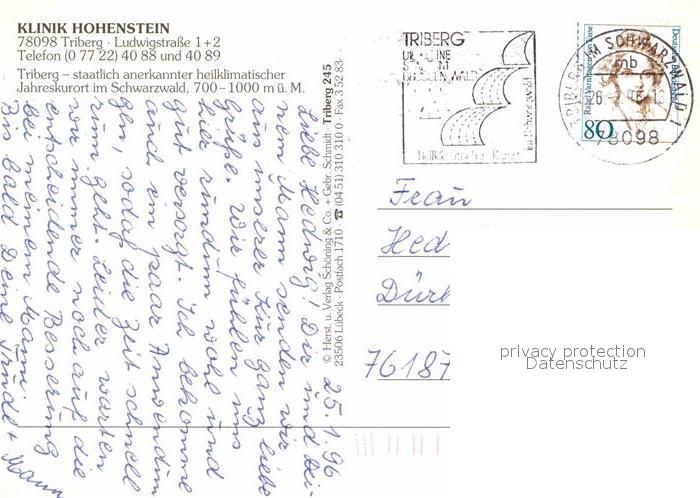 KLINIK HOHENSTEIN
78098 Triberg · Ludwigstraße 1+2
Telefon (0 77 22) 40 88 und 40 89
Triberg – staatlich anerkannter heilklimatischer
Jahreskurort im Schwarzwald, 700–1000 m ü. M.
25.1.96
Liebe Hedwig! Dir und Dei-
nem Mann senden wir
aus unserer Kur ganz liebe
Grüße. Wir fühlen uns
hier rundum wohl und
gut versorgt. Ich bekomme
auch ein paar Anwendun-
gen, sodaß die Zeit schnell
rum geht. Leider warten
wir immer noch auf die
entscheidende Besserung
bei meinem Mann.
Bis bald Deine Trudl + Mann
© Herst. u. Verlag Schöning & Co. + Gebr. Schmidt · Triberg 245
23506 Lübeck · Postfach 1710 · ☎ (04 51) 310 310 · Fax 3 52 83
TRIBERG
im Schwarzwald
TRIBERG IM SCHWARZWALD 1
mb
78098
80
Deutsche Bundespost
Rahel Varnhagen von Ense
Frau
Hed
Dürk
76187
privacy protection
Datenschutz